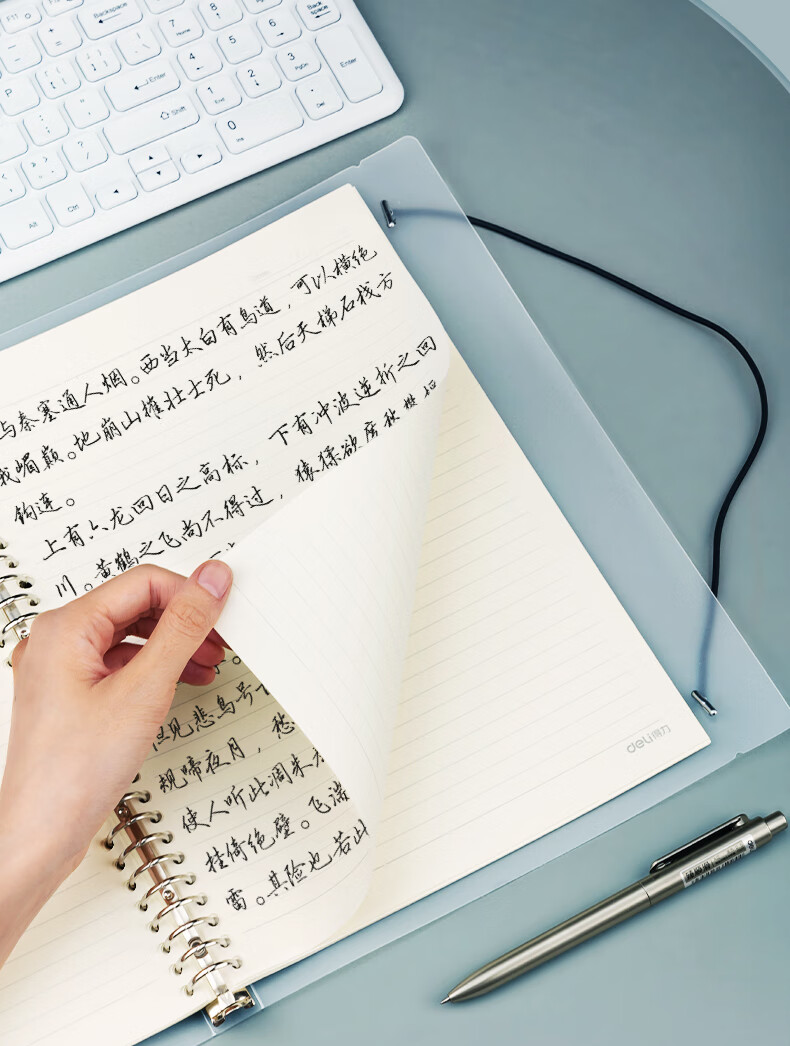 F11
Backspace
Back space
7 Home
8
9
4
5
6
1 End
2
3 PgDn
0 Ins
Enter
Enter
Shift
P
Alt
Ctrl
与秦塞通人烟。西当太白有鸟道，可以横绝
峨嵋巅。地崩山摧壮士死，然后天梯石栈方
钩连。
上有六龙回日之高标，下有冲波逆折之回
川。黄鹤之飞尚不得过，猿猱欲度
但见悲鸟号
规啼夜月，愁
使人听此凋朱
挂倚绝壁。飞湍
雷。其险也若此
deli得力